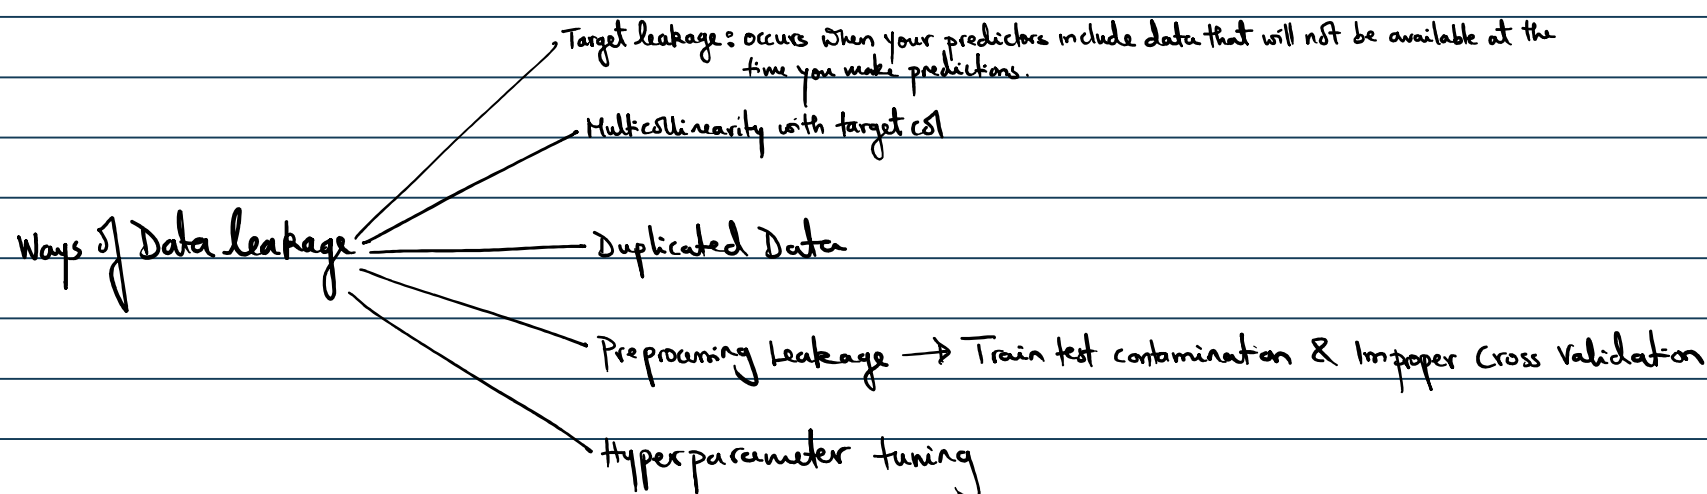 Target leakage: occurs when your predictors include data that will not be available at the
time you make predictions.
Multicollinearity with target col
Ways of Data leakage
Duplicated Data
Preprocessing Leakage → Train test contamination & Improper Cross Validation
Hyperparameter tuning